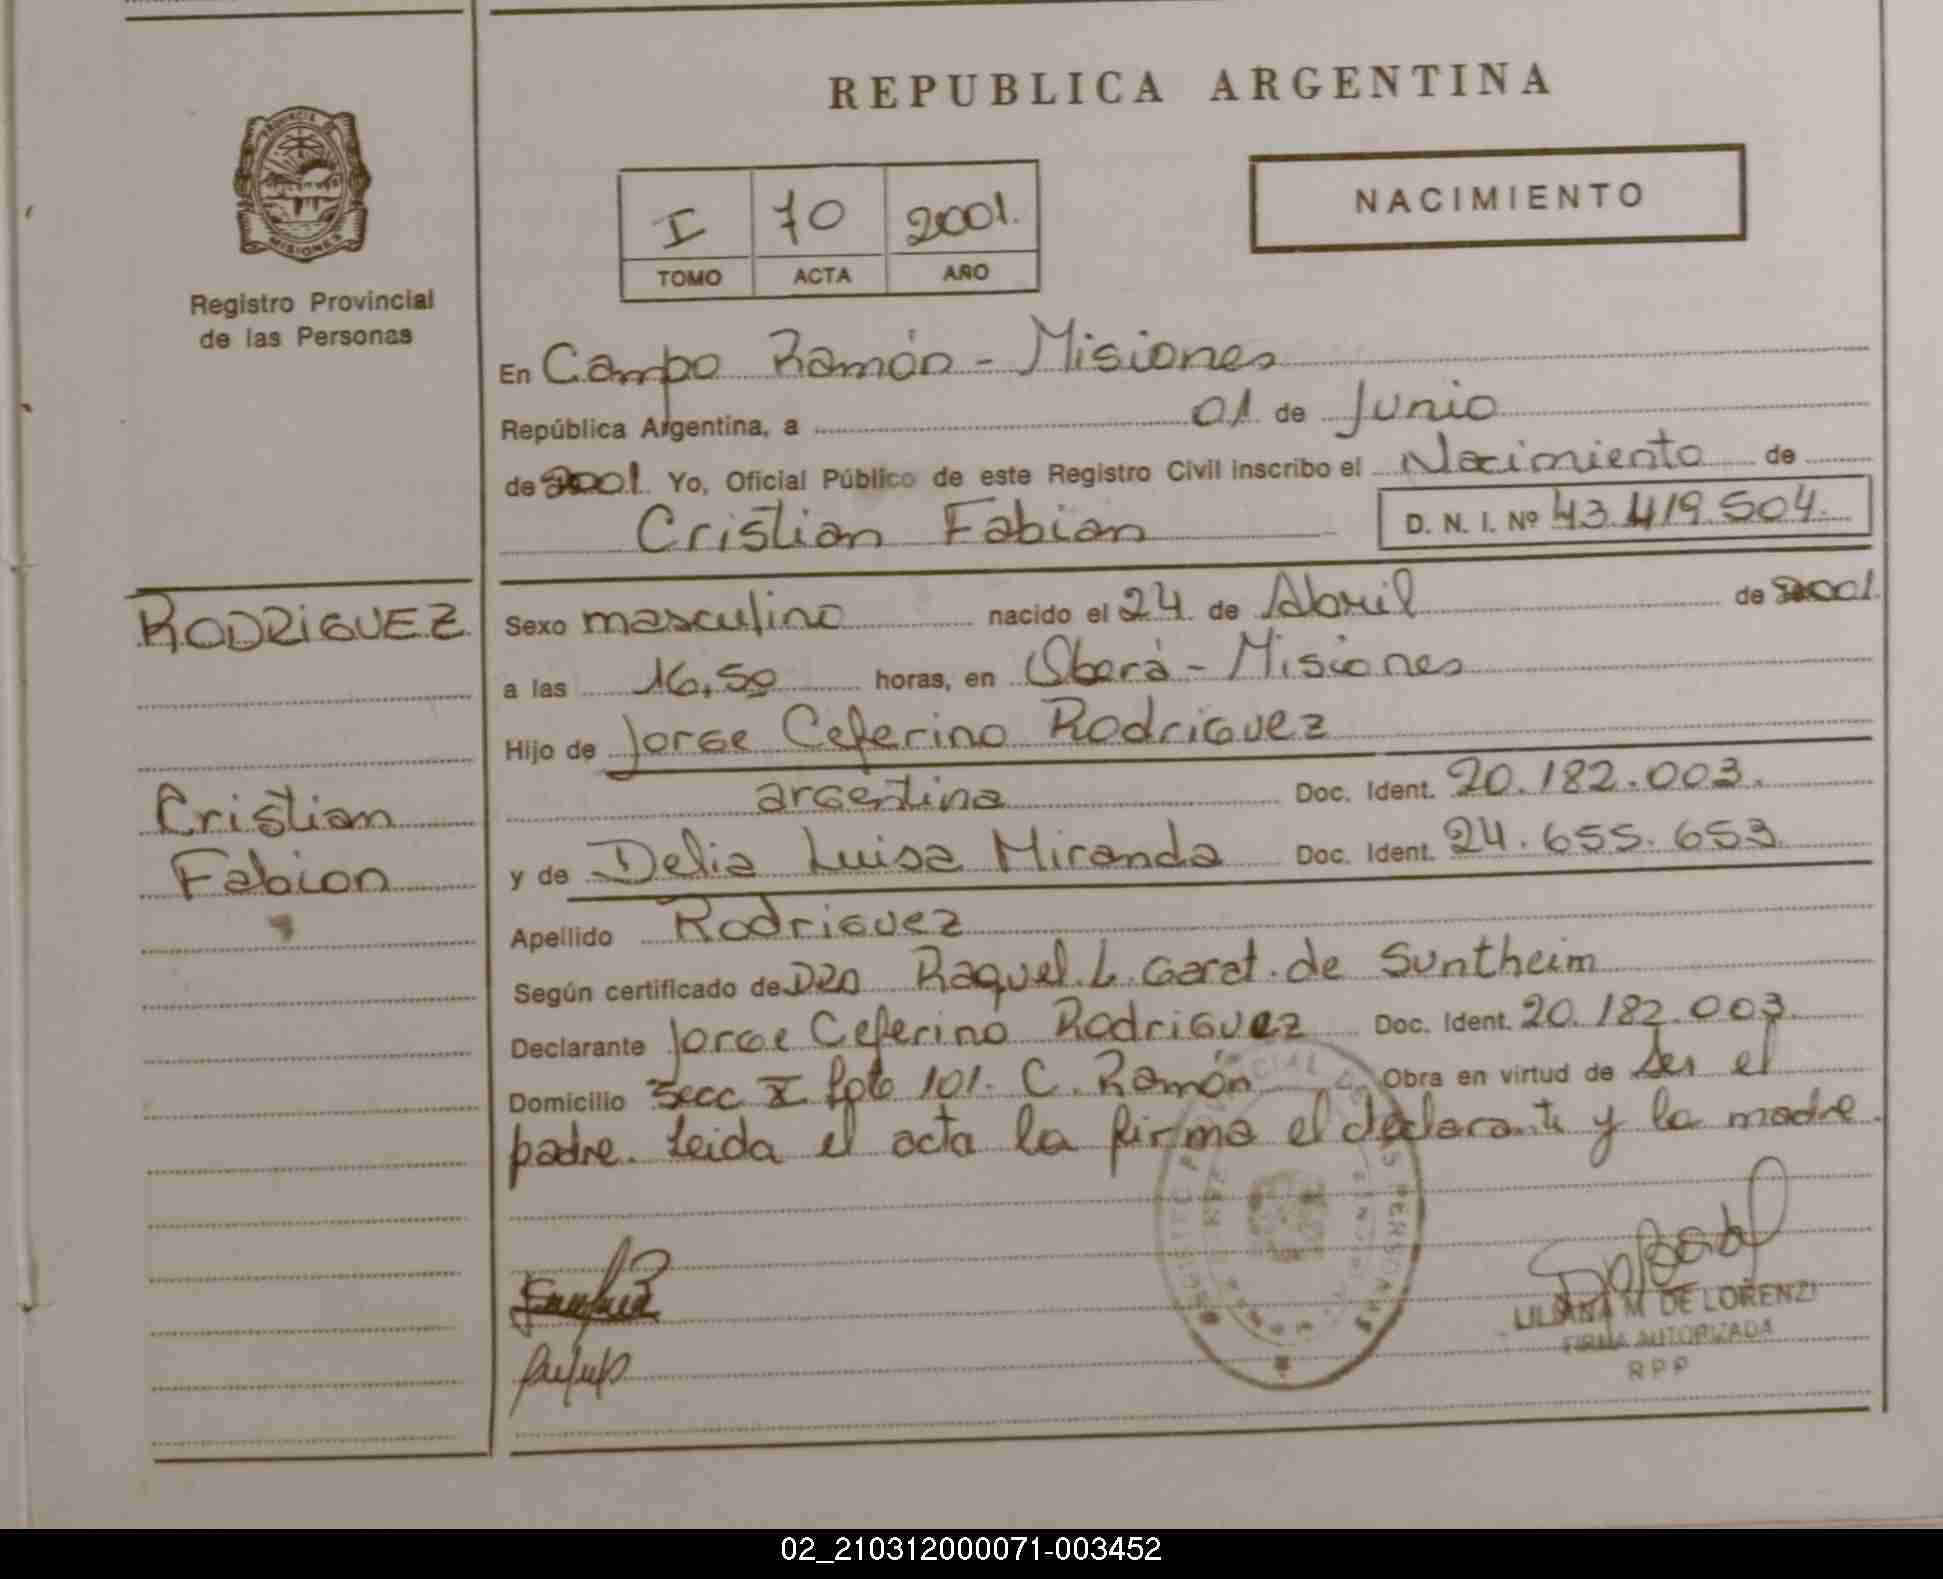 REPUBLICA ARGENTINA
PROVINCIA DE
MISIONES
Registro Provincial
de las Personas
I 70 2001.
TOMO ACTA AÑO
NACIMIENTO
En Campo Ramón - Misiones
República Argentina, a 01 de Junio
de 2001. Yo, Oficial Público de este Registro Civil inscribo el Nacimiento de
Cristian Fabian D. N. I. Nº 43.419.504.
RODRIGUEZ
Cristian
Fabian
Sexo masculino nacido el 24 de Abril de 2001.
a las 16,50 horas, en Oberá - Misiones
Hijo de Jorge Ceferino Rodriguez
argentina Doc. Ident. 20.182.003.
y de Delia Luisa Miranda Doc. Ident. 24.655.653
Apellido Rodriguez
Según certificado de Dra Raquel L. Garat de Suntheim
Declarante Jorge Ceferino Rodriguez Doc. Ident. 20.182.003.
Domicilio Secc X Lote 101. C. Ramón Obra en virtud de ser el
padre. Leida el acta la firma el declarante y la madre.
LILIANA M. DE LORENZI
FIRMA AUTORIZADA
R P P
02_210312000071-003452